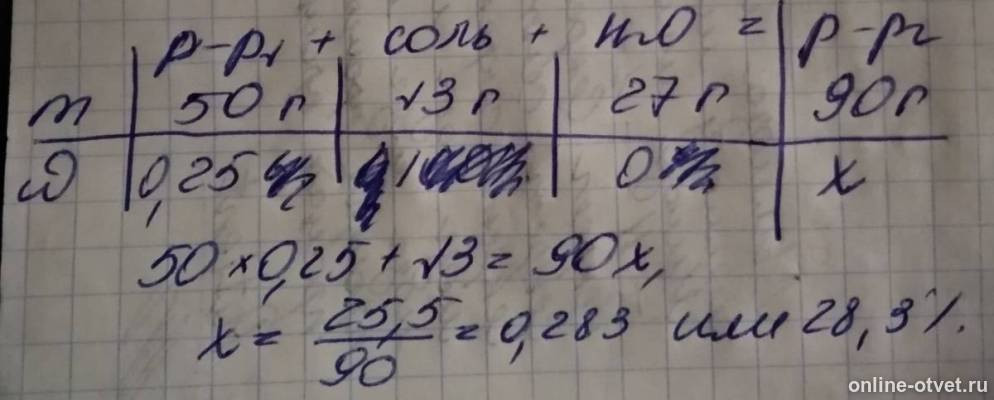 р-р₁ + соль + H₂O = р-р₂
m 50 г 13 г 27 г 90 г
ω 0,25 1 0 x
50 × 0,25 + 13 = 90x,
x = 25,5/90 = 0,283 или 28,3%.
online-otvet.ru